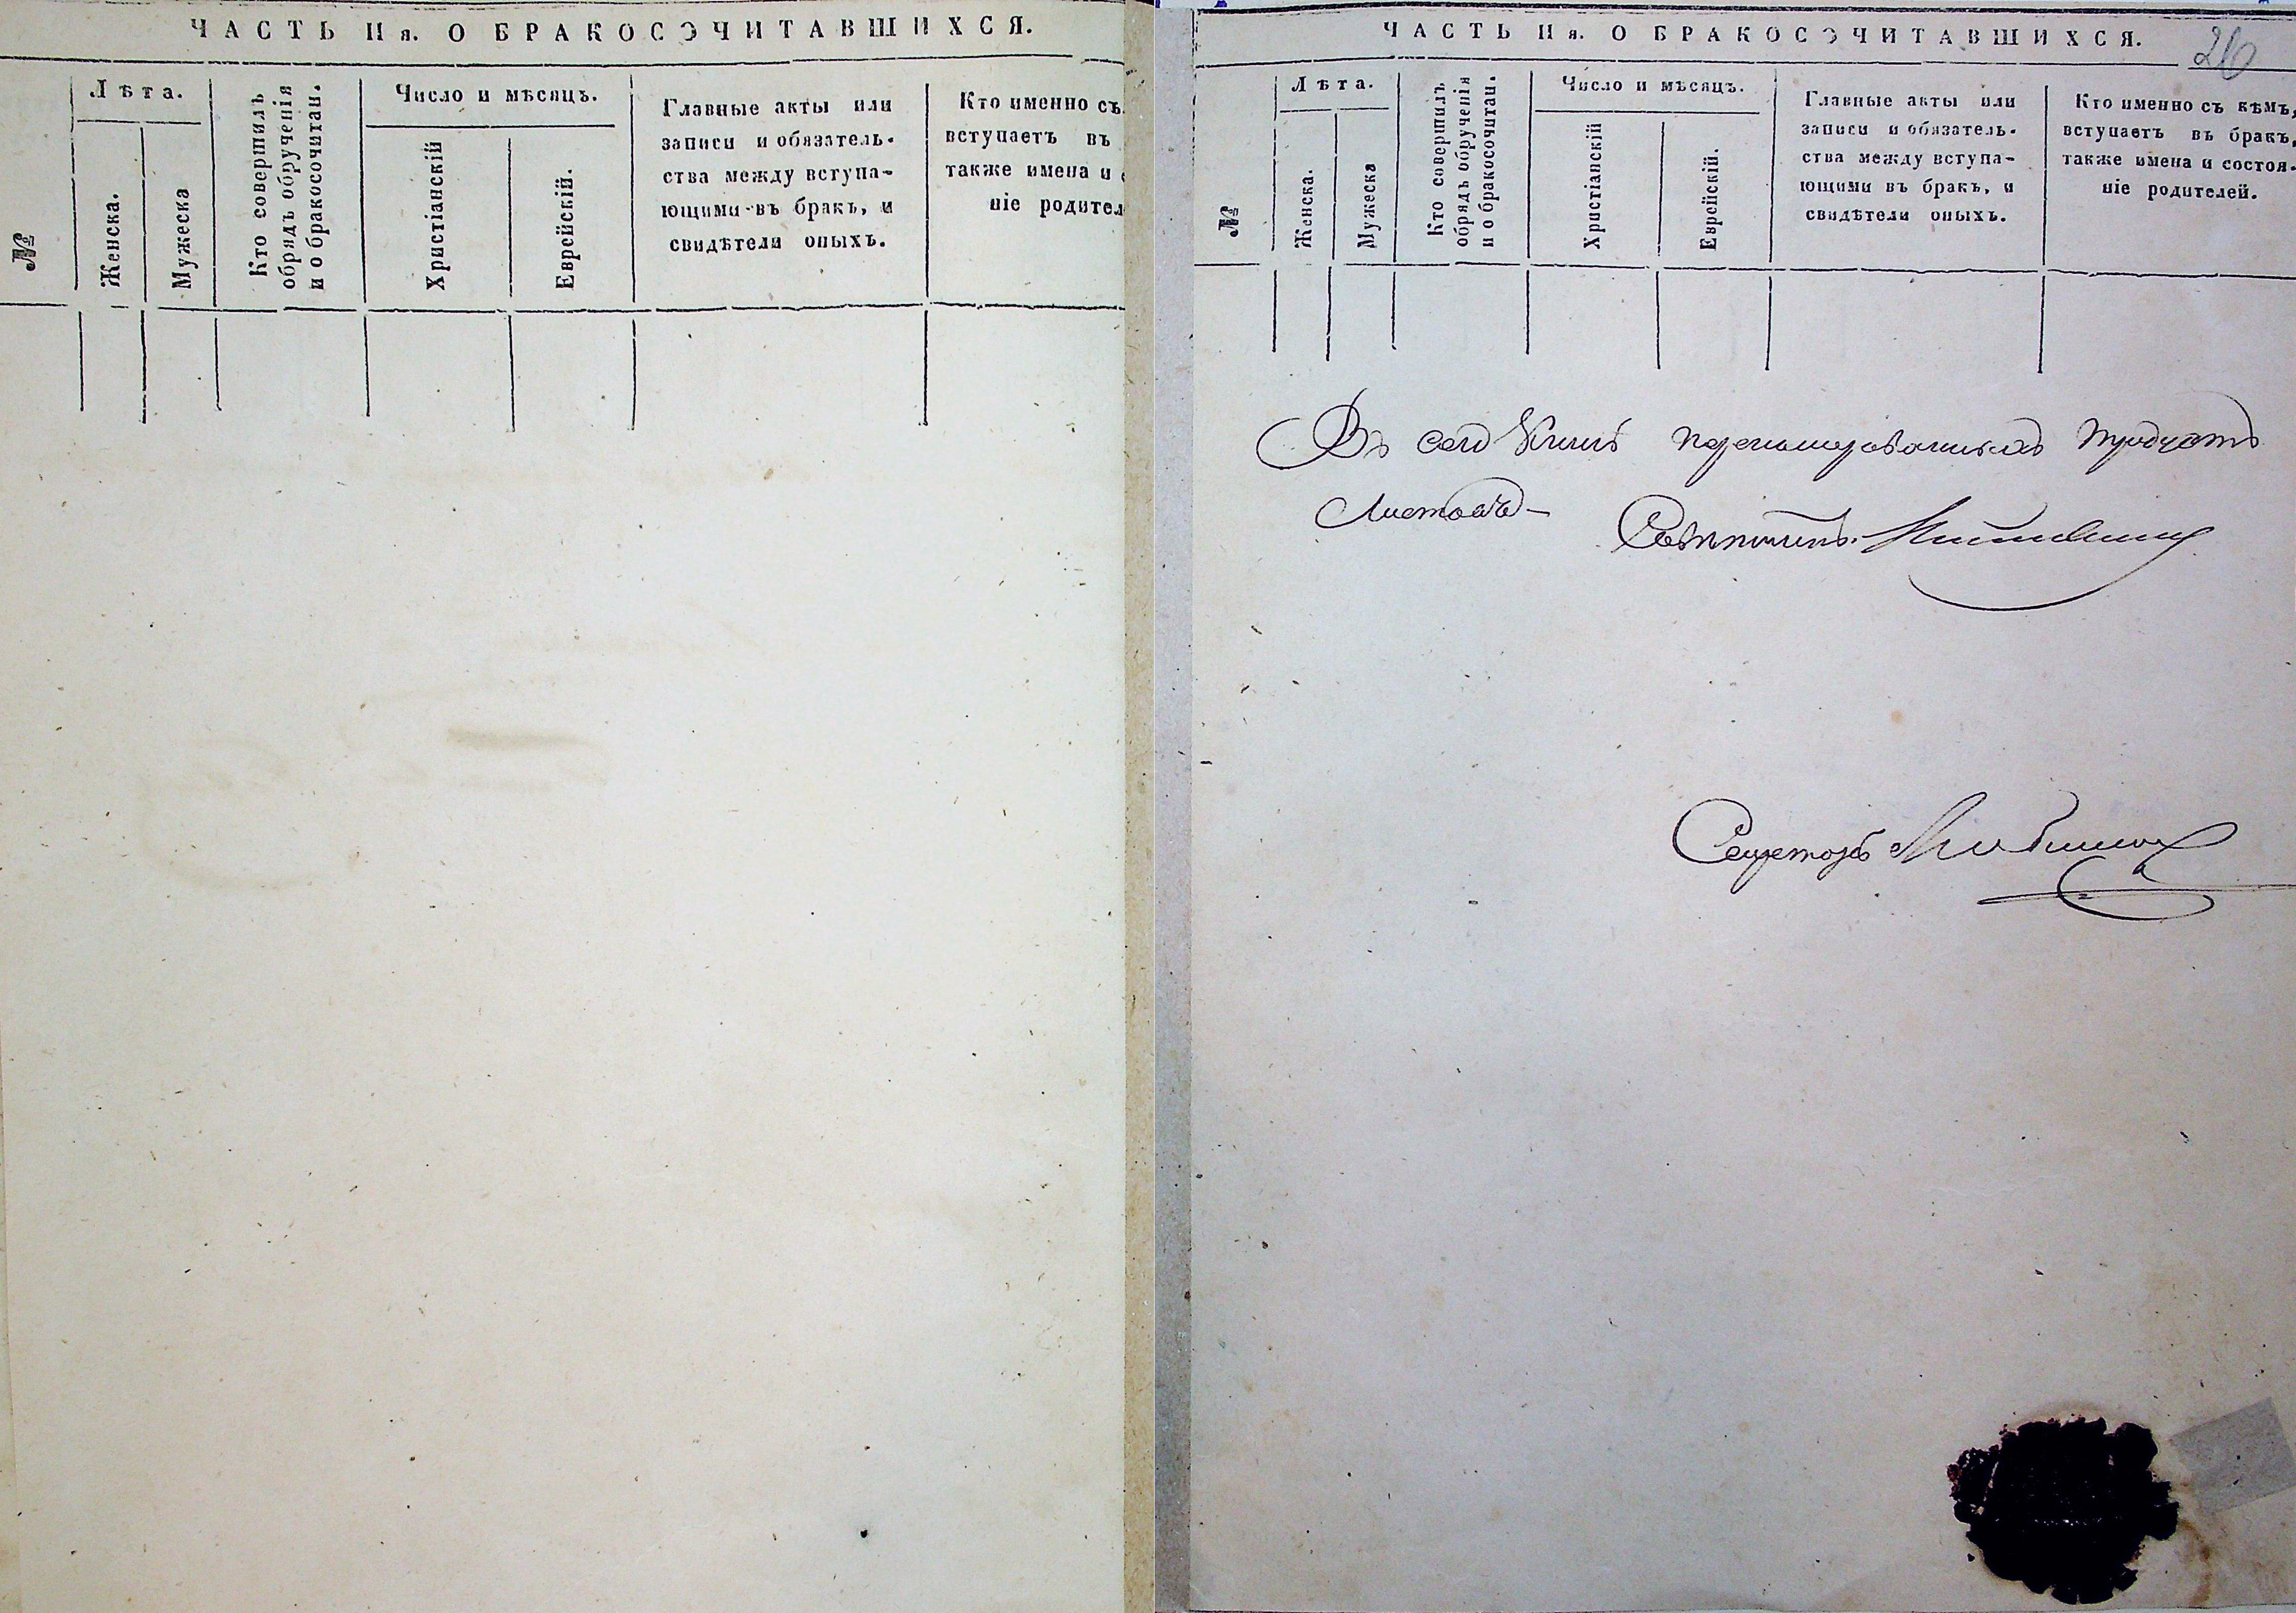 ЧАСТЬ II я. О БРАКОСОЧИТАВШИХСЯ.
№
Лѣта.
Женска.
Мужеска
Кто совершилъ
обрядъ обрученія
и о бракосочитаи.
Число и мѣсяцъ.
Христіанскій
Еврейскій.
Главные акты или
записи и обязатель-
ства между вступа-
ющими въ бракъ, и
свидѣтели оныхъ.
Кто именно съ
вступаетъ въ
также имена и с
ніе родител
ЧАСТЬ II я. О БРАКОСОЧИТАВШИХСЯ.
№
Лѣта.
Женска.
Мужеска
Кто совершилъ
обрядъ обрученія
и о бракосочитаи.
Число и мѣсяцъ.
Христіанскій
Еврейскій.
Главные акты или
записи и обязатель-
ства между вступа-
ющими въ бракъ, и
свидѣтели оныхъ.
Кто именно съ кѣмъ,
вступаетъ въ бракъ,
также имена и состоя-
ніе родителей.
Въ сей Книгѣ перенумерованныхъ тридцать
Листовъ
Совѣтникъ
Секретарь